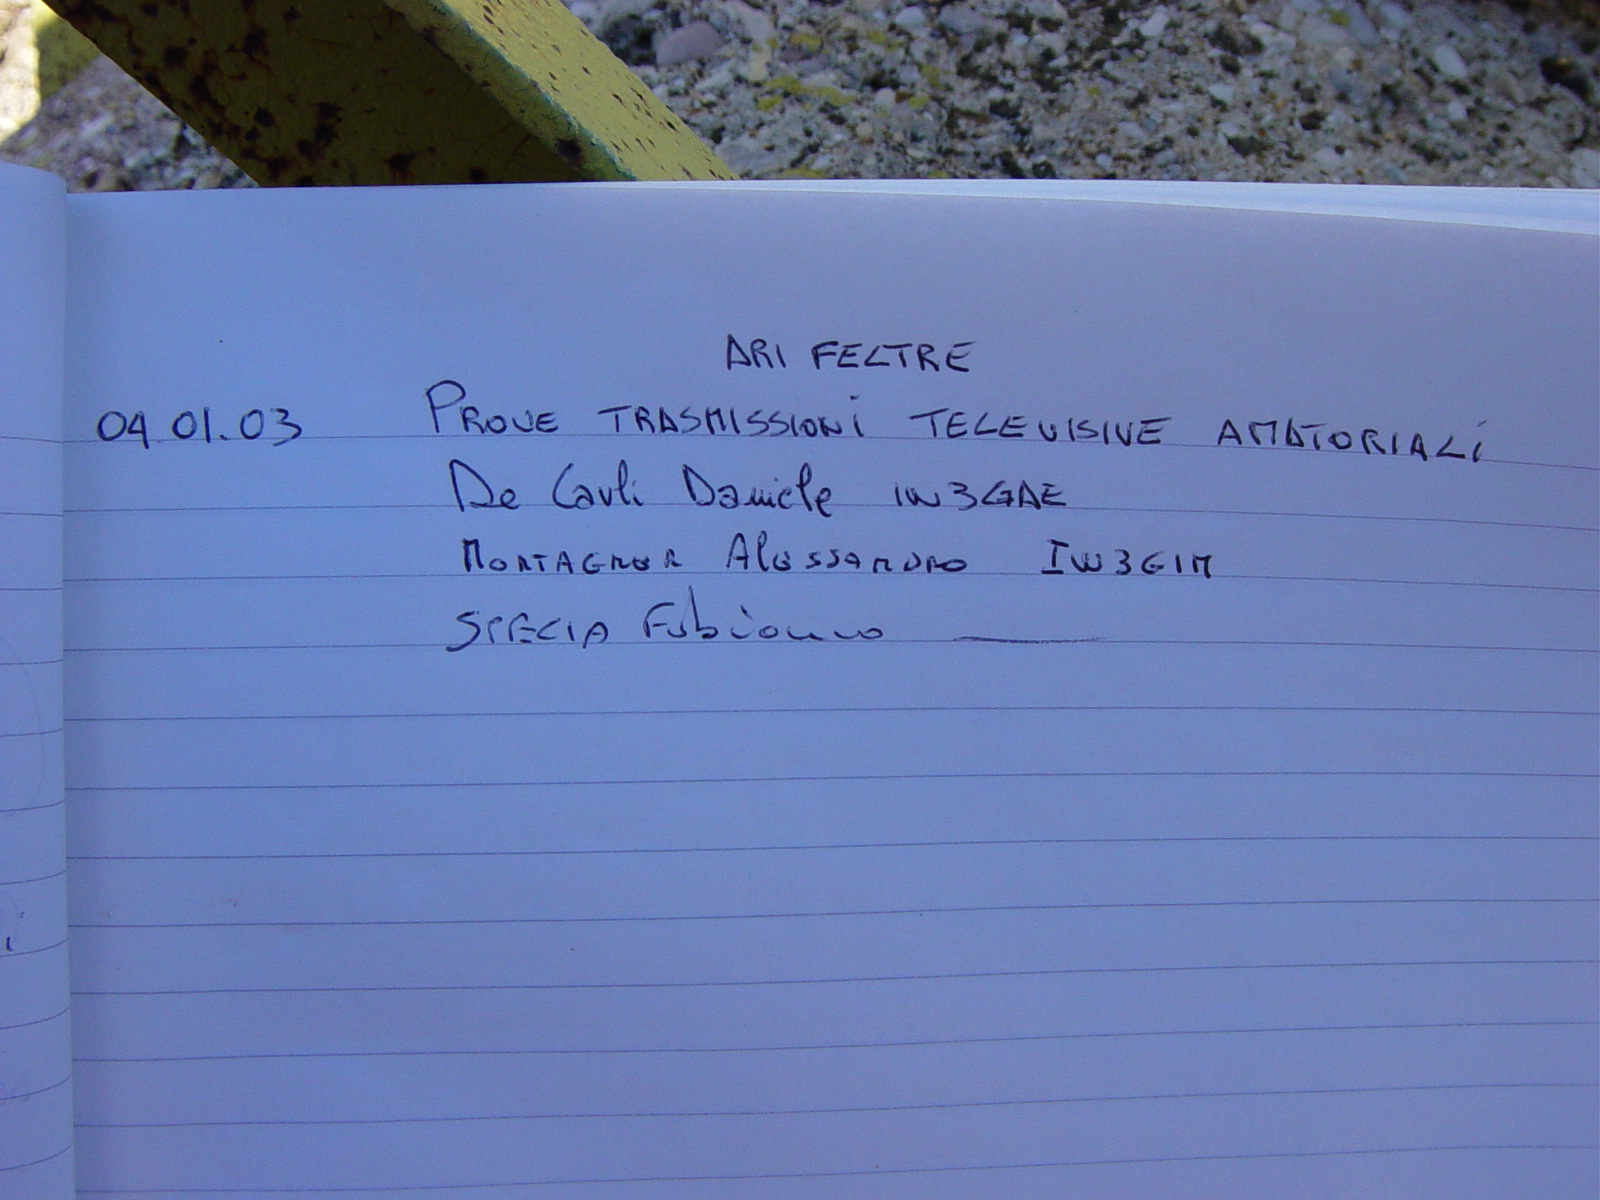 ARI FELTRE
04.01.03 PROVE TRASMISSIONI TELEVISIVE AMATORIALI
De Carli Daniele IW3GAE
MONTAGNER Alessandro IW3GIM
SPECIA Fabiano